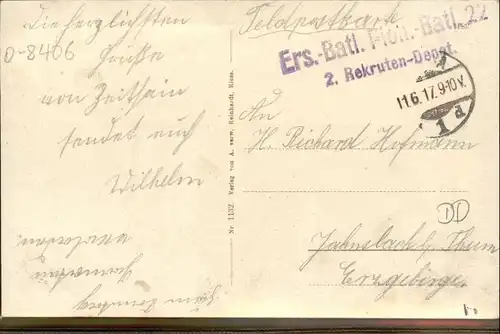 Die herzlichsten
D-8406
Grüße
von Zeithain
sendet euch
Wilhelm
Nr. 1132. Verlag von A. verw. Reinhardt, Riesa.
Feldpostkarte
Ers.-Batl. Pion.-Batl. 22
2. Rekruten-Depot.
11.6.17.9-10V.
1 d
An
H. Richard Hofmann
DD
Jahnsbach b/ Thum
Erzgebirge